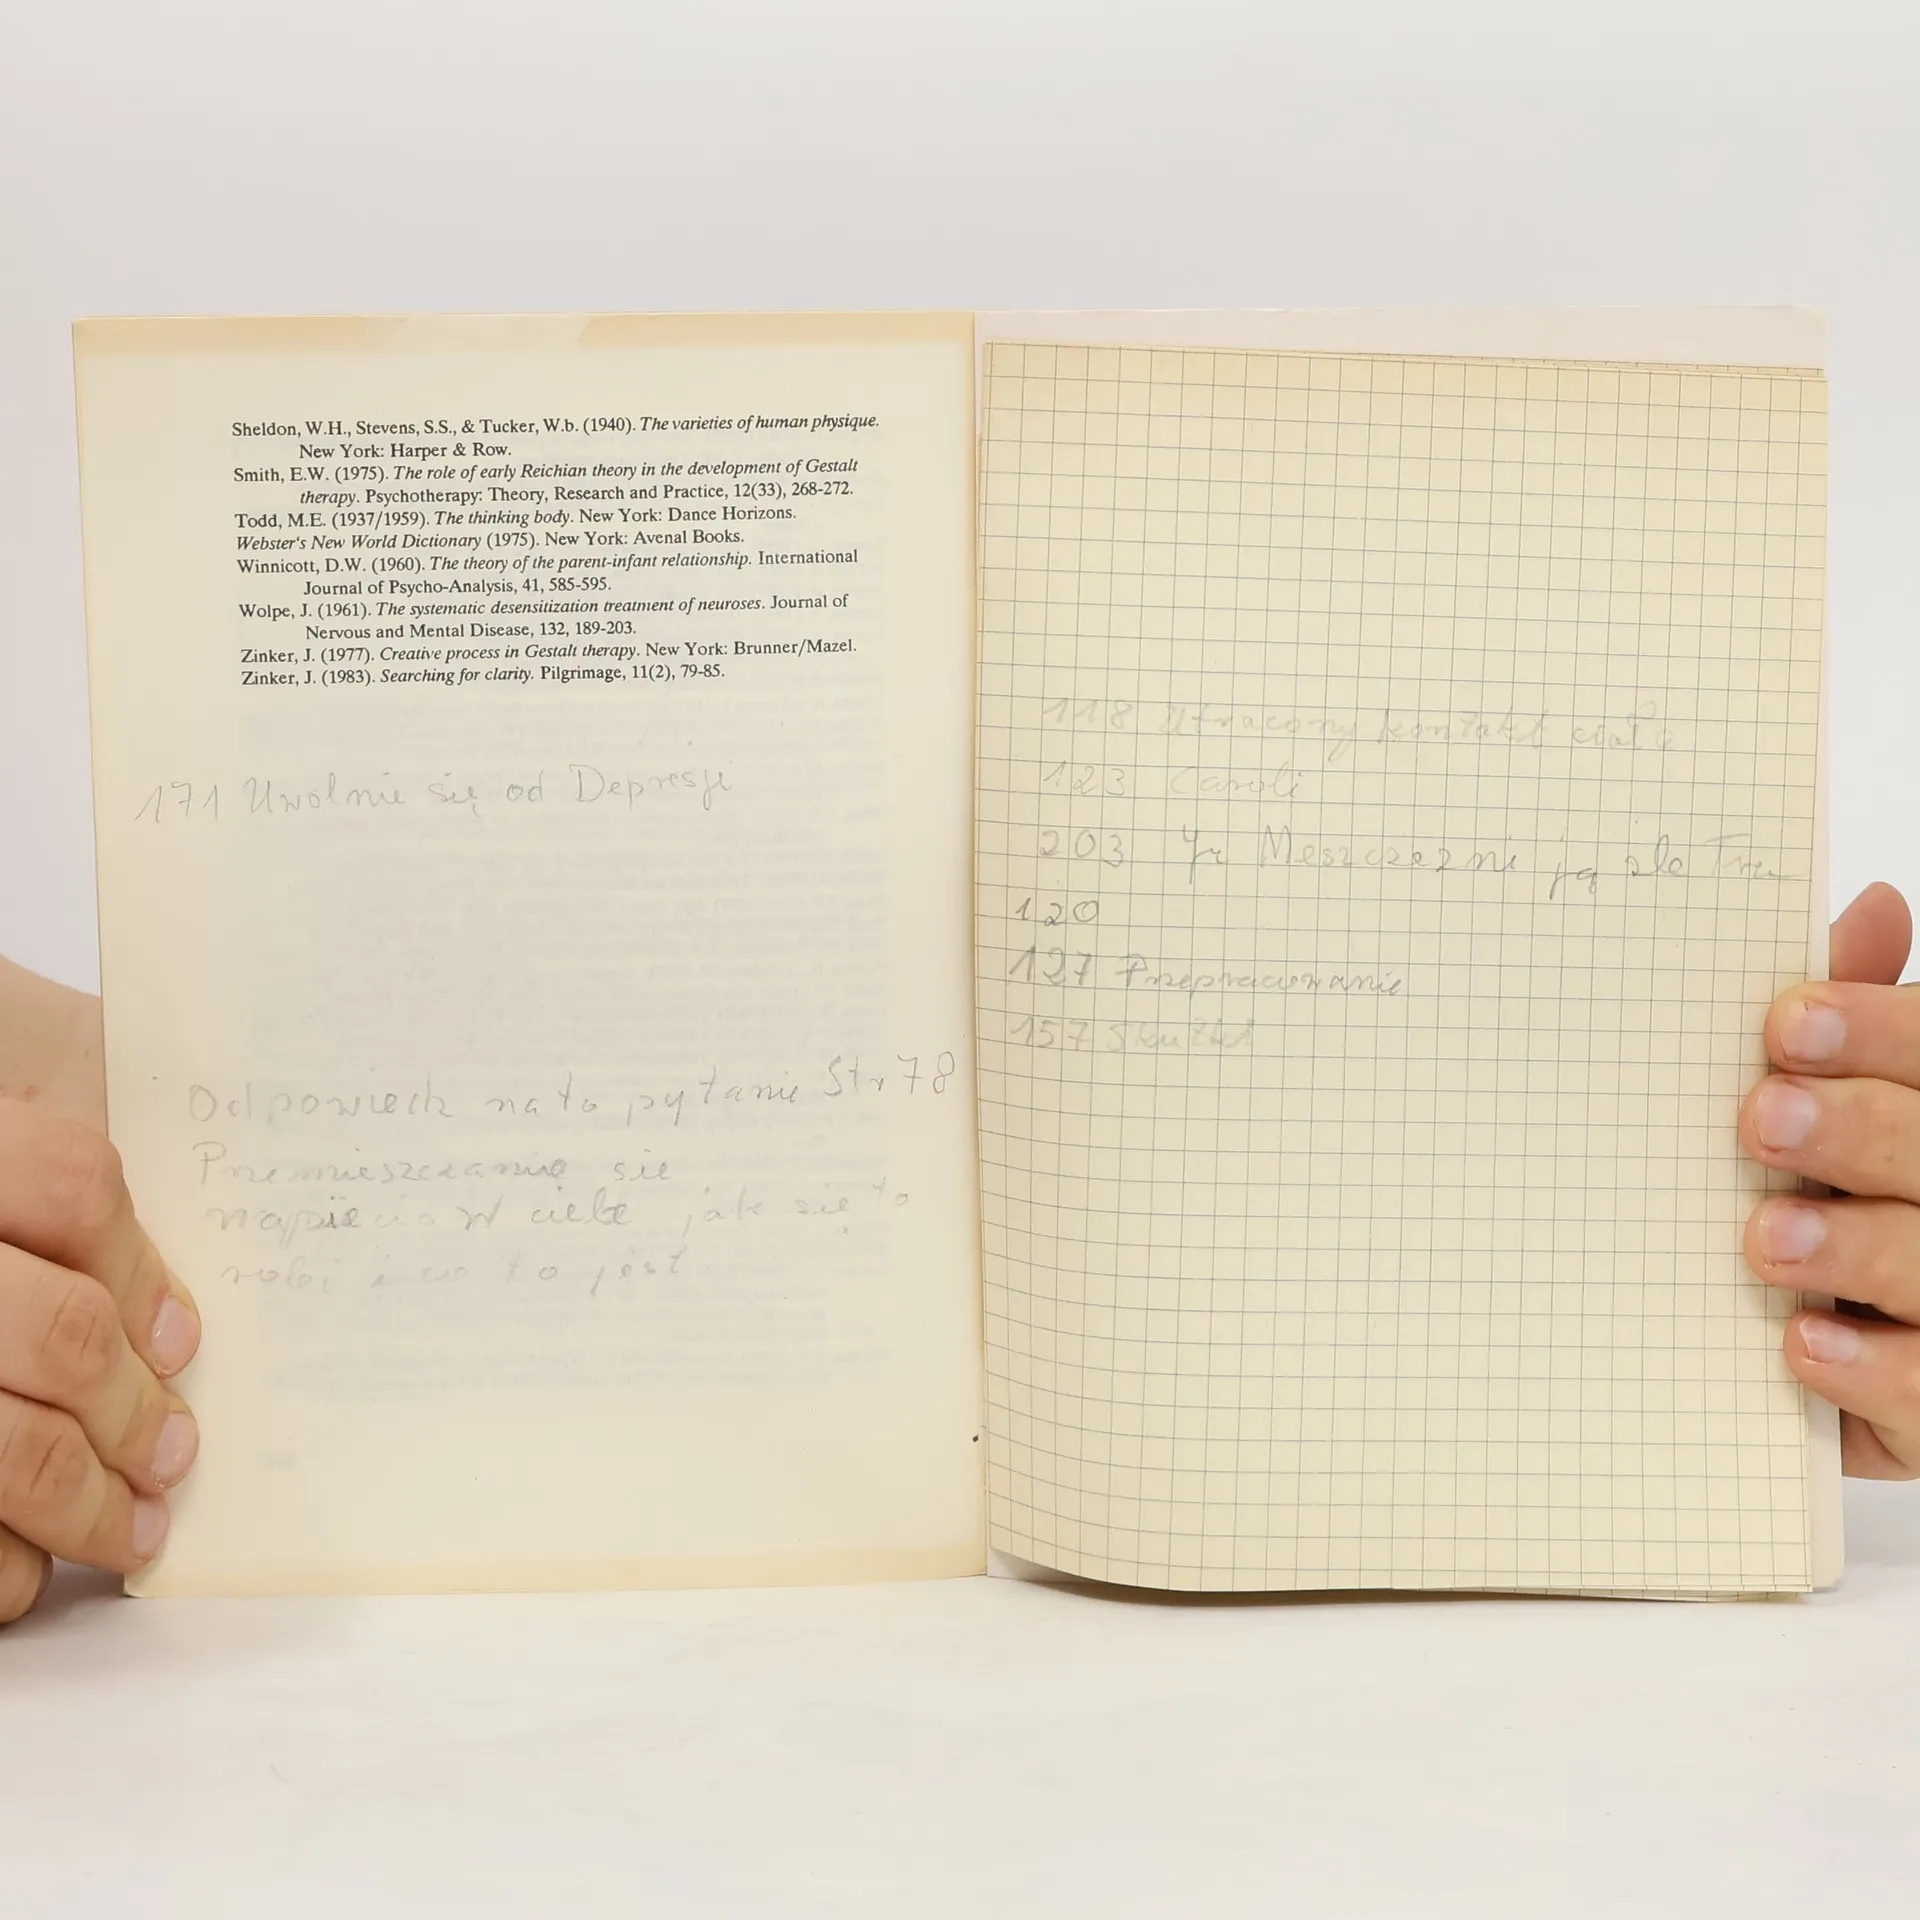 Sheldon, W.H., Stevens, S.S., & Tucker, W.b. (1940). The varieties of human physique.
New York: Harper & Row.
Smith, E.W. (1975). The role of early Reichian theory in the development of Gestalt
therapy. Psychotherapy: Theory, Research and Practice, 12(33), 268-272.
Todd, M.E. (1937/1959). The thinking body. New York: Dance Horizons.
Webster's New World Dictionary (1975). New York: Avenal Books.
Winnicott, D.W. (1960). The theory of the parent-infant relationship. International
Journal of Psycho-Analysis, 41, 585-595.
Wolpe, J. (1961). The systematic desensitization treatment of neuroses. Journal of
Nervous and Mental Disease, 132, 189-203.
Zinker, J. (1977). Creative process in Gestalt therapy. New York: Brunner/Mazel.
Zinker, J. (1983). Searching for clarity. Pilgrimage, 11(2), 79-85.
171 Uwolnie się od Depresji
Odpowiedz na to pytanie Str 78
Przemieszczanie sie
napięcia w ciele jak się to
robi i co to jest
118 Utracony kontakt
123 Caroli
203
120
127 Przepracowanie
157